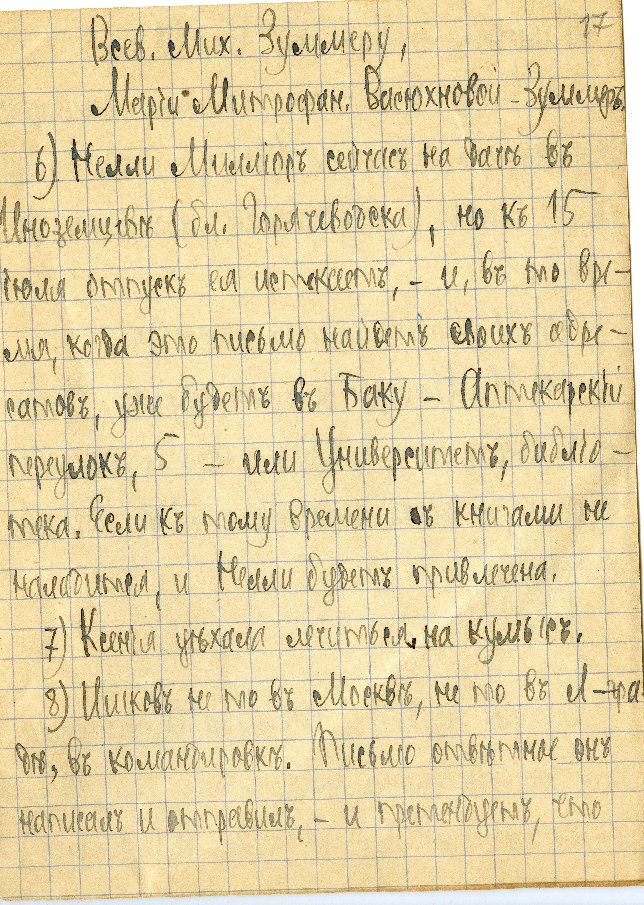 17
Всев. Мих. Зуммеру,
Марiи Митрофан. Васюхновой-Зуммеръ.
6) Нелли Миллiоръ сейчасъ на дачѣ въ
Иноземцевѣ (бл. Горячеводска), но къ 15
iюля отпускъ ея истекаетъ, – и, въ то вре-
мя, когда это письмо найдетъ своихъ адре-
сатовъ, уже будетъ въ Баку – Аптекарскiй
переулокъ, 5 – или Университетъ, библiо-
тека. Если къ тому времени съ книгами не
наладится, и Нелли будетъ привлечена.
7) Ксенiя уѣхала лечиться на кумысъ.
8) не то въ Москвѣ, не то въ Л-гра-
дѣ, въ командировкѣ. Письмо отвѣтное онъ
написалъ и отправилъ, – и претендуетъ, что